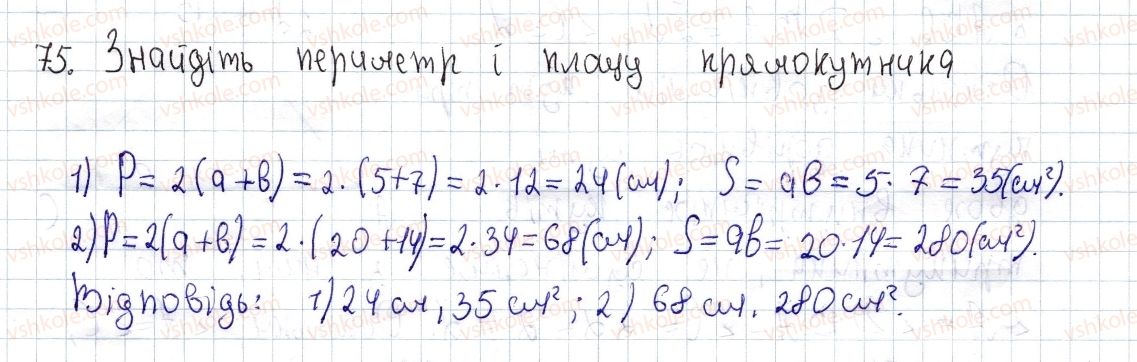 75. Знайдіть периметр і площу прямокутника
1) P = 2(a+b) = 2·(5+7) = 2·12 = 24(см); S = ab = 5·7 = 35(см²).
2) P = 2(a+b) = 2·(20+14) = 2·34 = 68(см); S = ab = 20·14 = 280(см²).
Відповідь: 1) 24 см, 35 см²; 2) 68 см. 280 см².